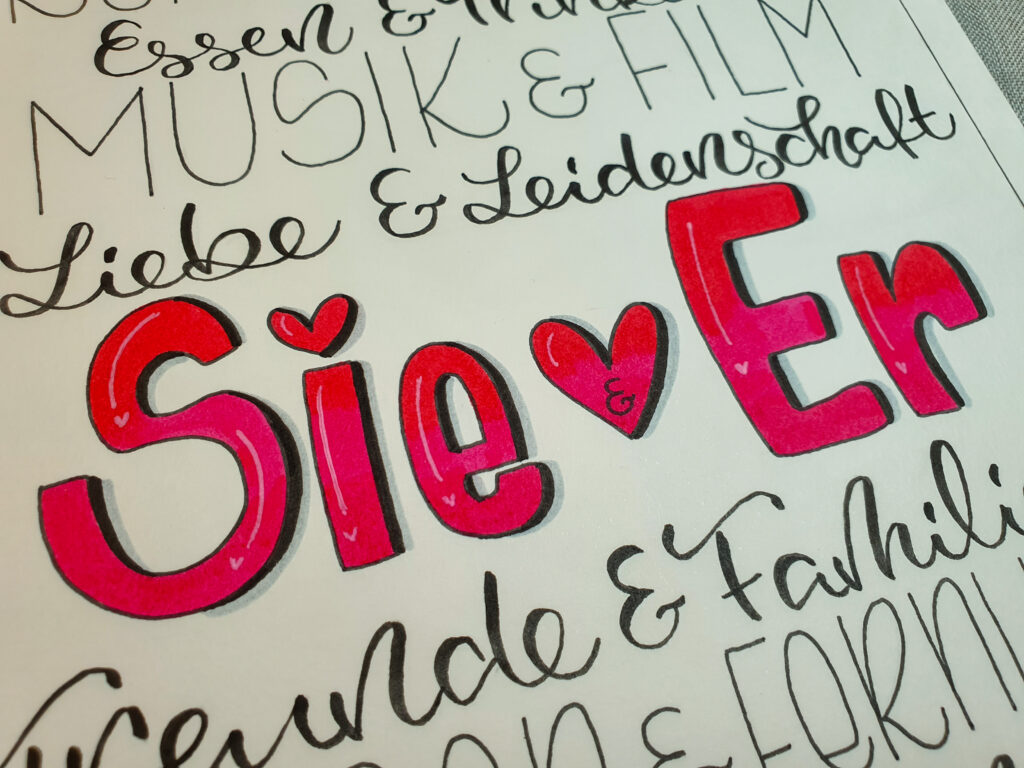 Essen &
MUSIK & FILM
Liebe & Leidenschaft
Sie & Er
Freunde & Famili
&